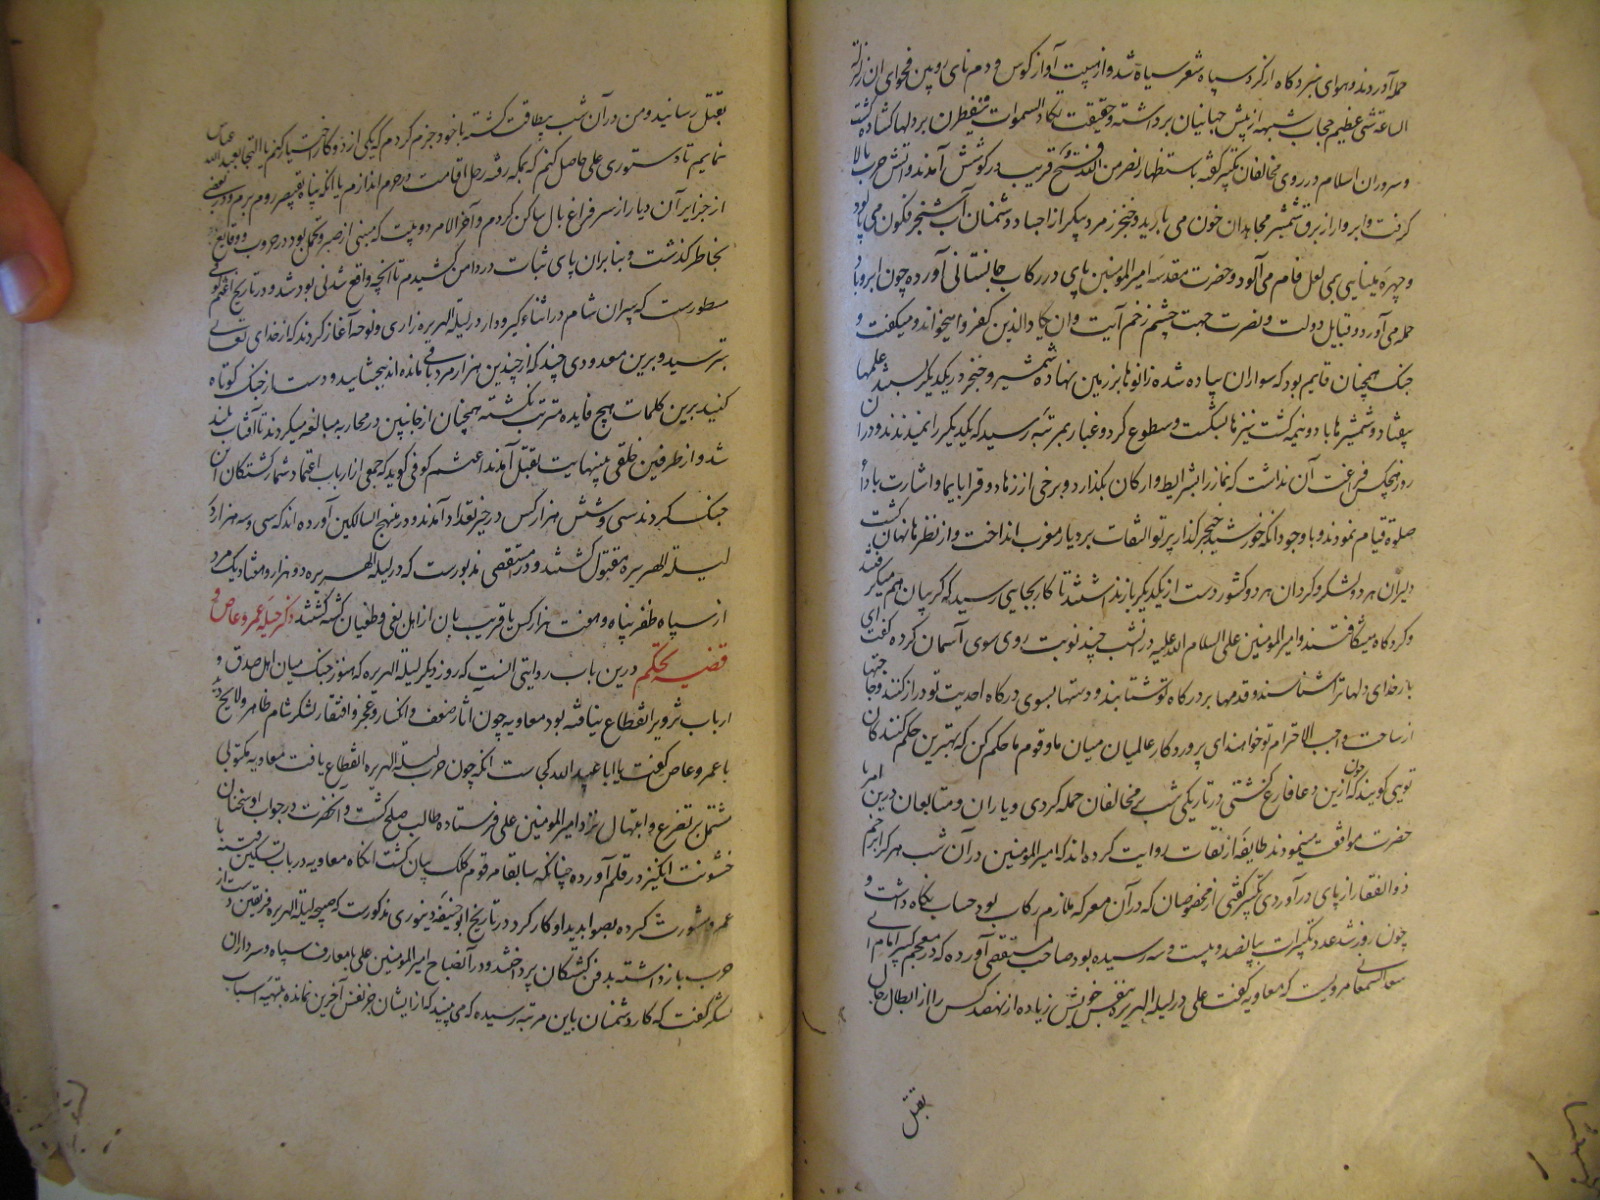 حمله آوردند و هوای نبردگاه از گرد سپاه شعر سیاه شد و از هیبت آواز کوس و دم نای رویین فحوای ان زلزلة
الساعة شیٔ عظیم حجاب شبهه از پیش جهانیان برداشته و حقیقت تکاد السموات یتفطرن بر دلها کشاده کشت
و سروران اسلام در روی مخالفان تکبیر گفته باستظهار نصر من الله و فتح قریب در کوشش آمدند و آتش حرب بالا
گرفت و ابروار از برق شمشیر مجاهدان خون می بارید و خنجر زمرد پیکر از اجساد دشمنان آب شنجرفگون می پالود
و چهره مینایی بمی لعل فام می آلود و حضرت مقدسه امیرالمومنین پای در رکاب جانستانی آورده چون ابر و باد
حمله می آورد و قبایل دولت و نصرت جهت چشم زخم آیت و ان یکاد الذین کفروا میخواند و میگفت و
جنگ همچنان قایم بود که سواران پیاده شده زانوها بر زمین نهاده شمشیر و خنجر در یکدیگر علمها
بیفتاد و شمشیرها بدو نیمه کشت نیزها بشکست و سطوع کرد و غبار بمرتبه رسید که یکدیگر را نمیدیدند و در آن
روز هیچکس فرغت آن نداشت که نماز را بشرایط و ارکان بگذارد و برخی از زهاد و قرا بایما و اشارت باداء
صلوة قیام نمودند و با وجود آنکه خورشید خنجر گذار پرتو التفات بر دیار مغرب انداخت و از نظرها نهان کشت
دلیران هر دو لشکر و گردان هر دو کشور دست از یکدیگر باز نداشتند تا کار بجایی رسید که گریبان هم میگرفتند
و کردگاه میشکافتند و امیرالمومنین علی السلام الله علیه در آن شب چند نوبت روی سوی آسمان کرده گفت ای
بار خدای دلها ترا شناسند و قدمها بر درگاه تو شتابند و دستها بسوی درگاه احدیت تو دراز کنند و حاجتها
از ساحت واجب الاحترام تو خواهند ای پروردگار عالمیان میان ما و قوم ما حکم کن که بهترین حکم کنندگان
تویی گویند که چون ازین دعا فارغ گشتی در تاریکی شب بر مخالفان حمله کردی و یاران و متابعان درین امر با
حضرت موافقت مینمودند طایفه از ثقات روایت کرده اند که امیرالمومنین در آن شب هر کرا بزخم
ذوالفقار از پای در آوردی تکبیر گفتی از مخصوصان که در آن معرکه ملازم رکاب بود حساب نگاه داشت و
چون روز شد عدد تکبیرات بپانصد و بیست و سه رسیده بود صاحب مستقصی آورده که در معجم کبیر امام ابی
مرویست که معاویه گفت علی در لیلة الهریر بنفس خویش زیاده از نهصد کس را از ابطال رجال
بقتل
بقتل رسانید و من در آن شب بیطاقت گشته با خود جزم کردم که یکی از دو کار اختیار کنم یا التجا بعبدالله عباس
نمایم تا دستوری علی حاصل کنم که بمکه رفته رحل اقامت در حرم اندازم یا آنکه پناه بقیصر روم برم و در بعضی
از جزایر آن دیار از سر فراغ بال ساکن کردم و آخر الامر دو بیت که مبنی از صبر و تحمل بود در حروب و وقایع
بخاطر گذشت و بنا بران پای ثبات در دامن کشیدم تا آنچه واقع شدنی بود شد و در تاریخ اعثم کوفی
مسطورست که پیران شام در اثناء گیرودار در لیلة الهریر زاری و نوحه آغاز کردند که از خدای تعالی
بترسید و برین معدودی چند که از چندین هزار مرد باقی مانده اند ببخشایید و دست از جنگ کوتاه
کنید برین کلمات هیچ فایده مترتب نکشته همچنان از جانبین در محاربه مبالغه میکردند تا آفتاب بلند
شد و از طرفین خلقی بینهایت بقتل آمدند اعثم کوفی گوید که جمعی از ارباب اعتماد شمار کشتگان این
جنگ کردند سی و شش هزار کس در حیز تعداد آمدند و در منهج السالکین آورده اند که سی و سه هزار در
لیلة الهریر مقتول گشتند و در مستقصی مذبورست که در لیلة الهریر دو هزار و هفتاد یک مرد
از سپاه ظفر پناه و هفت هزار کس یا قریب بان از اهل بغی و طغیان کشته گشتند ذکر حیله عمرو عاص و
قضیه تحکیم درین باب روایتی آنست که روز دیگر لیلة الهریر که هنوز جنگ میان اهل صدق و
ارباب تزویر انقطاع نیافته بود معاویه چون آثار ضعف و انکسار و عجز و افتقار لشکر شام ظاهر و لایح دید
با عمرو عاص گفت یا ابا عبدالله کی ست آنکه چون حرب لیلة الهریر انقطاع یافت معاویه مکتوبی
مشتمل بر تضرع و ابتهال نزد امیرالمومنین علی فرستاده طالب صلح گشت و آنحضرت در جواب او سخنان
خشونت انگیز در قلم آورده چنانکه سابقا مرقوم کلک بیان گشت آنگاه معاویه در باب تسکین فتنه با
عمرو مشورت کرده بصوابدید او کار کرد در تاریخ ابو حنیفه دینوری مذکورست که صبیحه لیلة الهریر فریقین دست از
حرب باز داشته بدفن کشتگان پرداختند و در آن صباح امیرالمومنین علی با معارف سپاه و سرداران
لشکر گفت که کار دشمنان باین مرتبه رسیده که می بینید که از ایشان جز نفس آخرین نمانده بتهیه اسباب